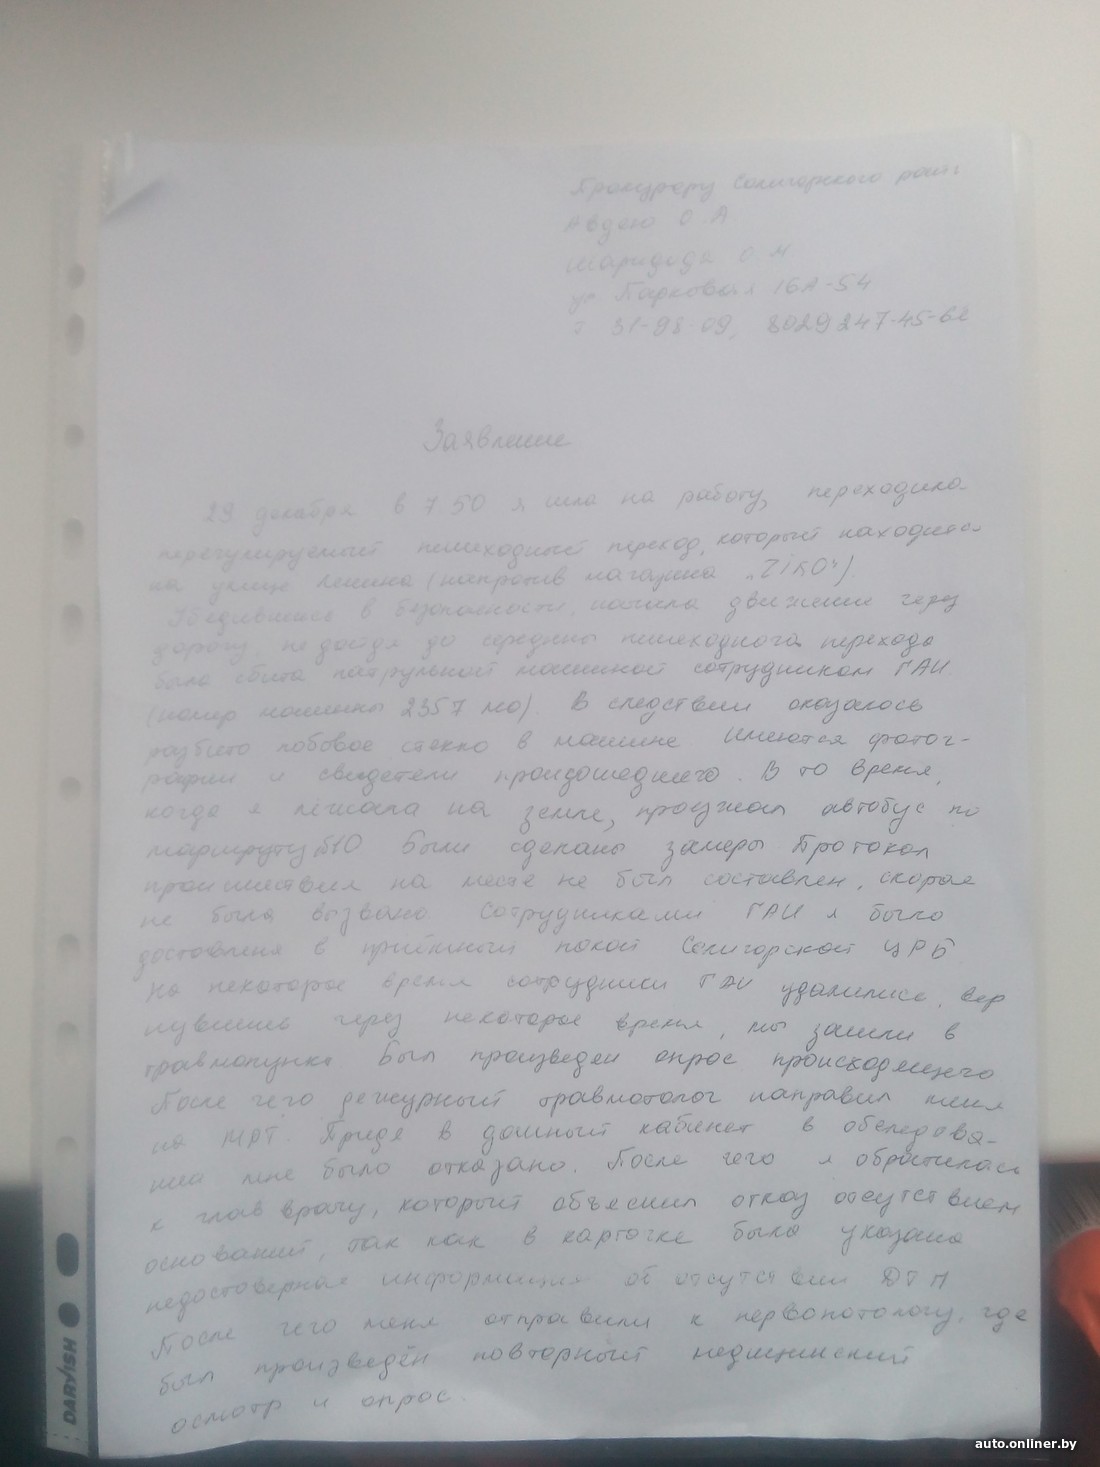 Прокурору Солигорского рай-
Авдею О А
О Н
ул Парковая 16А-54
т 31-98-09, 8029 247-45-62
Заявление
29 декабря в 7 50 я шла на работу, переходила
нерегулируемый пешеходный переход, который находится
на улице Ленина (напротив магазина "ZIKO")
Убедившись в безопасности, начала движение через
дорогу, не дойдя до середины пешеходного перехода
была сбита патрульной машиной сотрудником ГАИ
(номер машины 2357 мо). В следствии оказалось
разбито лобовое стекло в машине Имеются фотог-
рафии и свидетели произошедшего. В то время,
когда я лежала на земле, проезжал автобус по
маршруту №10 Были сделаны замеры Протокол
происшествия на месте не был составлен, скорая
не была вызвана Сотрудниками ГАИ я была
доставлена в приёмный покой Солигорской ЦРБ
На некоторое время сотрудники ГАИ удалились, вер
нувшись через некоторое время, мы зашли в
травмопункт Был произведен опрос происходящего
После чего дежурный травмотолог направил меня
на МРТ. Придя в данный кабинет в обследова-
нии мне было отказано. После чего я обратилась
к глав врачу, который объяснил отказ отсутствием
оснований, так как в карточке была указана
недостоверная информация об отсутствии ДТП
После чего меня отправили к невропотологу, где
был произведён повторный медицинский
осмотр и опрос.
DARVISH
auto.onliner.by